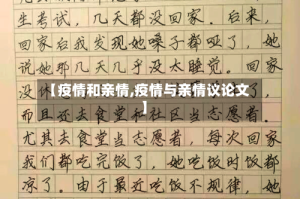 生考试，几天都没回家。后来，
回家后我发现她嗓子都哑了，她
说她那几天都没太睡觉。回家
【疫情和亲情,疫情与亲情议论文
】
而且还去食堂和社区当志愿者。
尤其去食堂当志愿者，每次回家
我们都吃完饭了，她吃饭时饭都
凉了。由于最近吃饭不规律，她